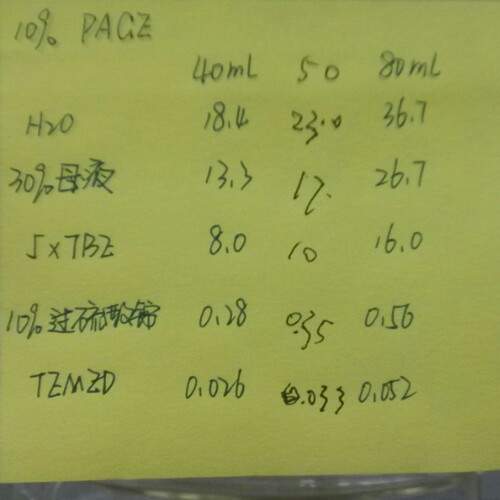 10% PAGE
40mL 50 80mL
H2O 18.4 23.0 36.7
30%母液 13.3 17. 26.7
5×TBE 8.0 10 16.0
10%过硫酸铵 0.28 0.35 0.56
TEMED 0.026 0.033 0.052